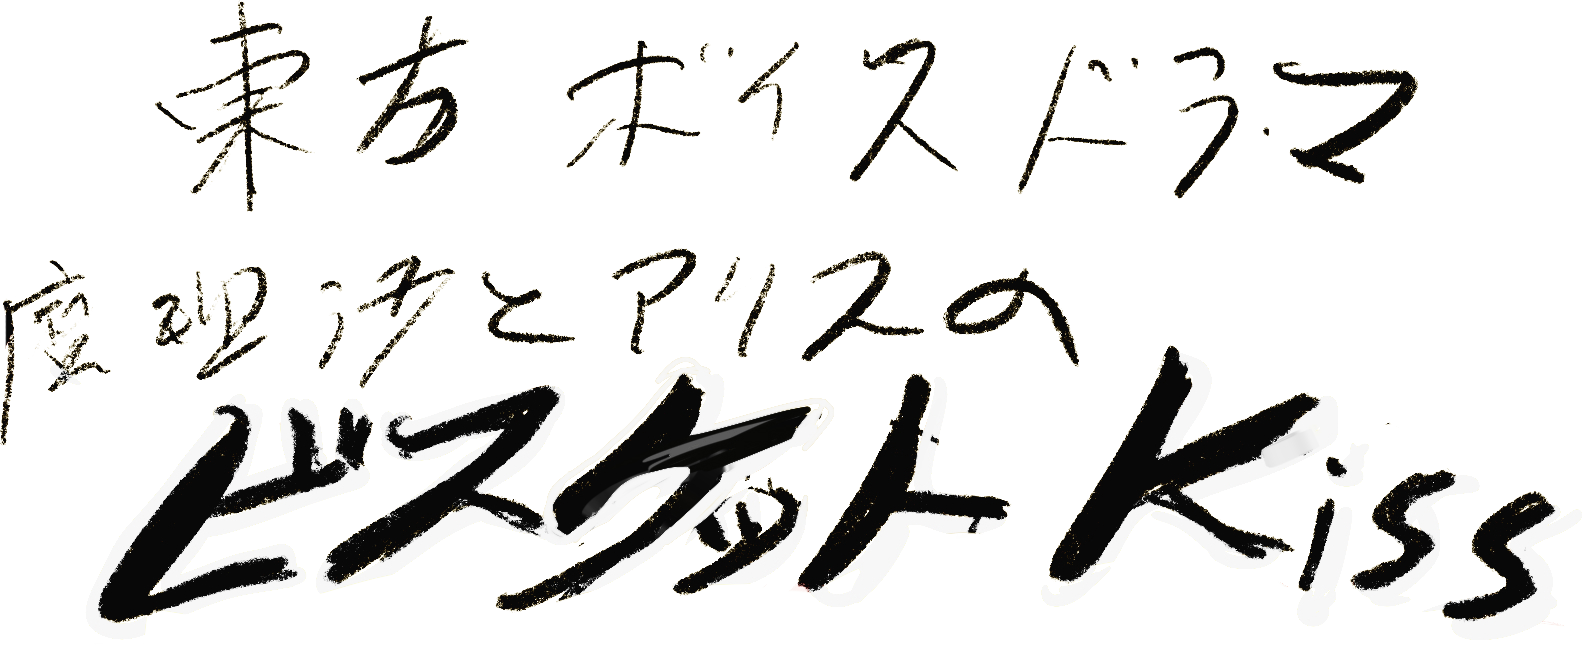 東方 ボイスドラマ
魔理沙とアリスの
ビスケット Kiss